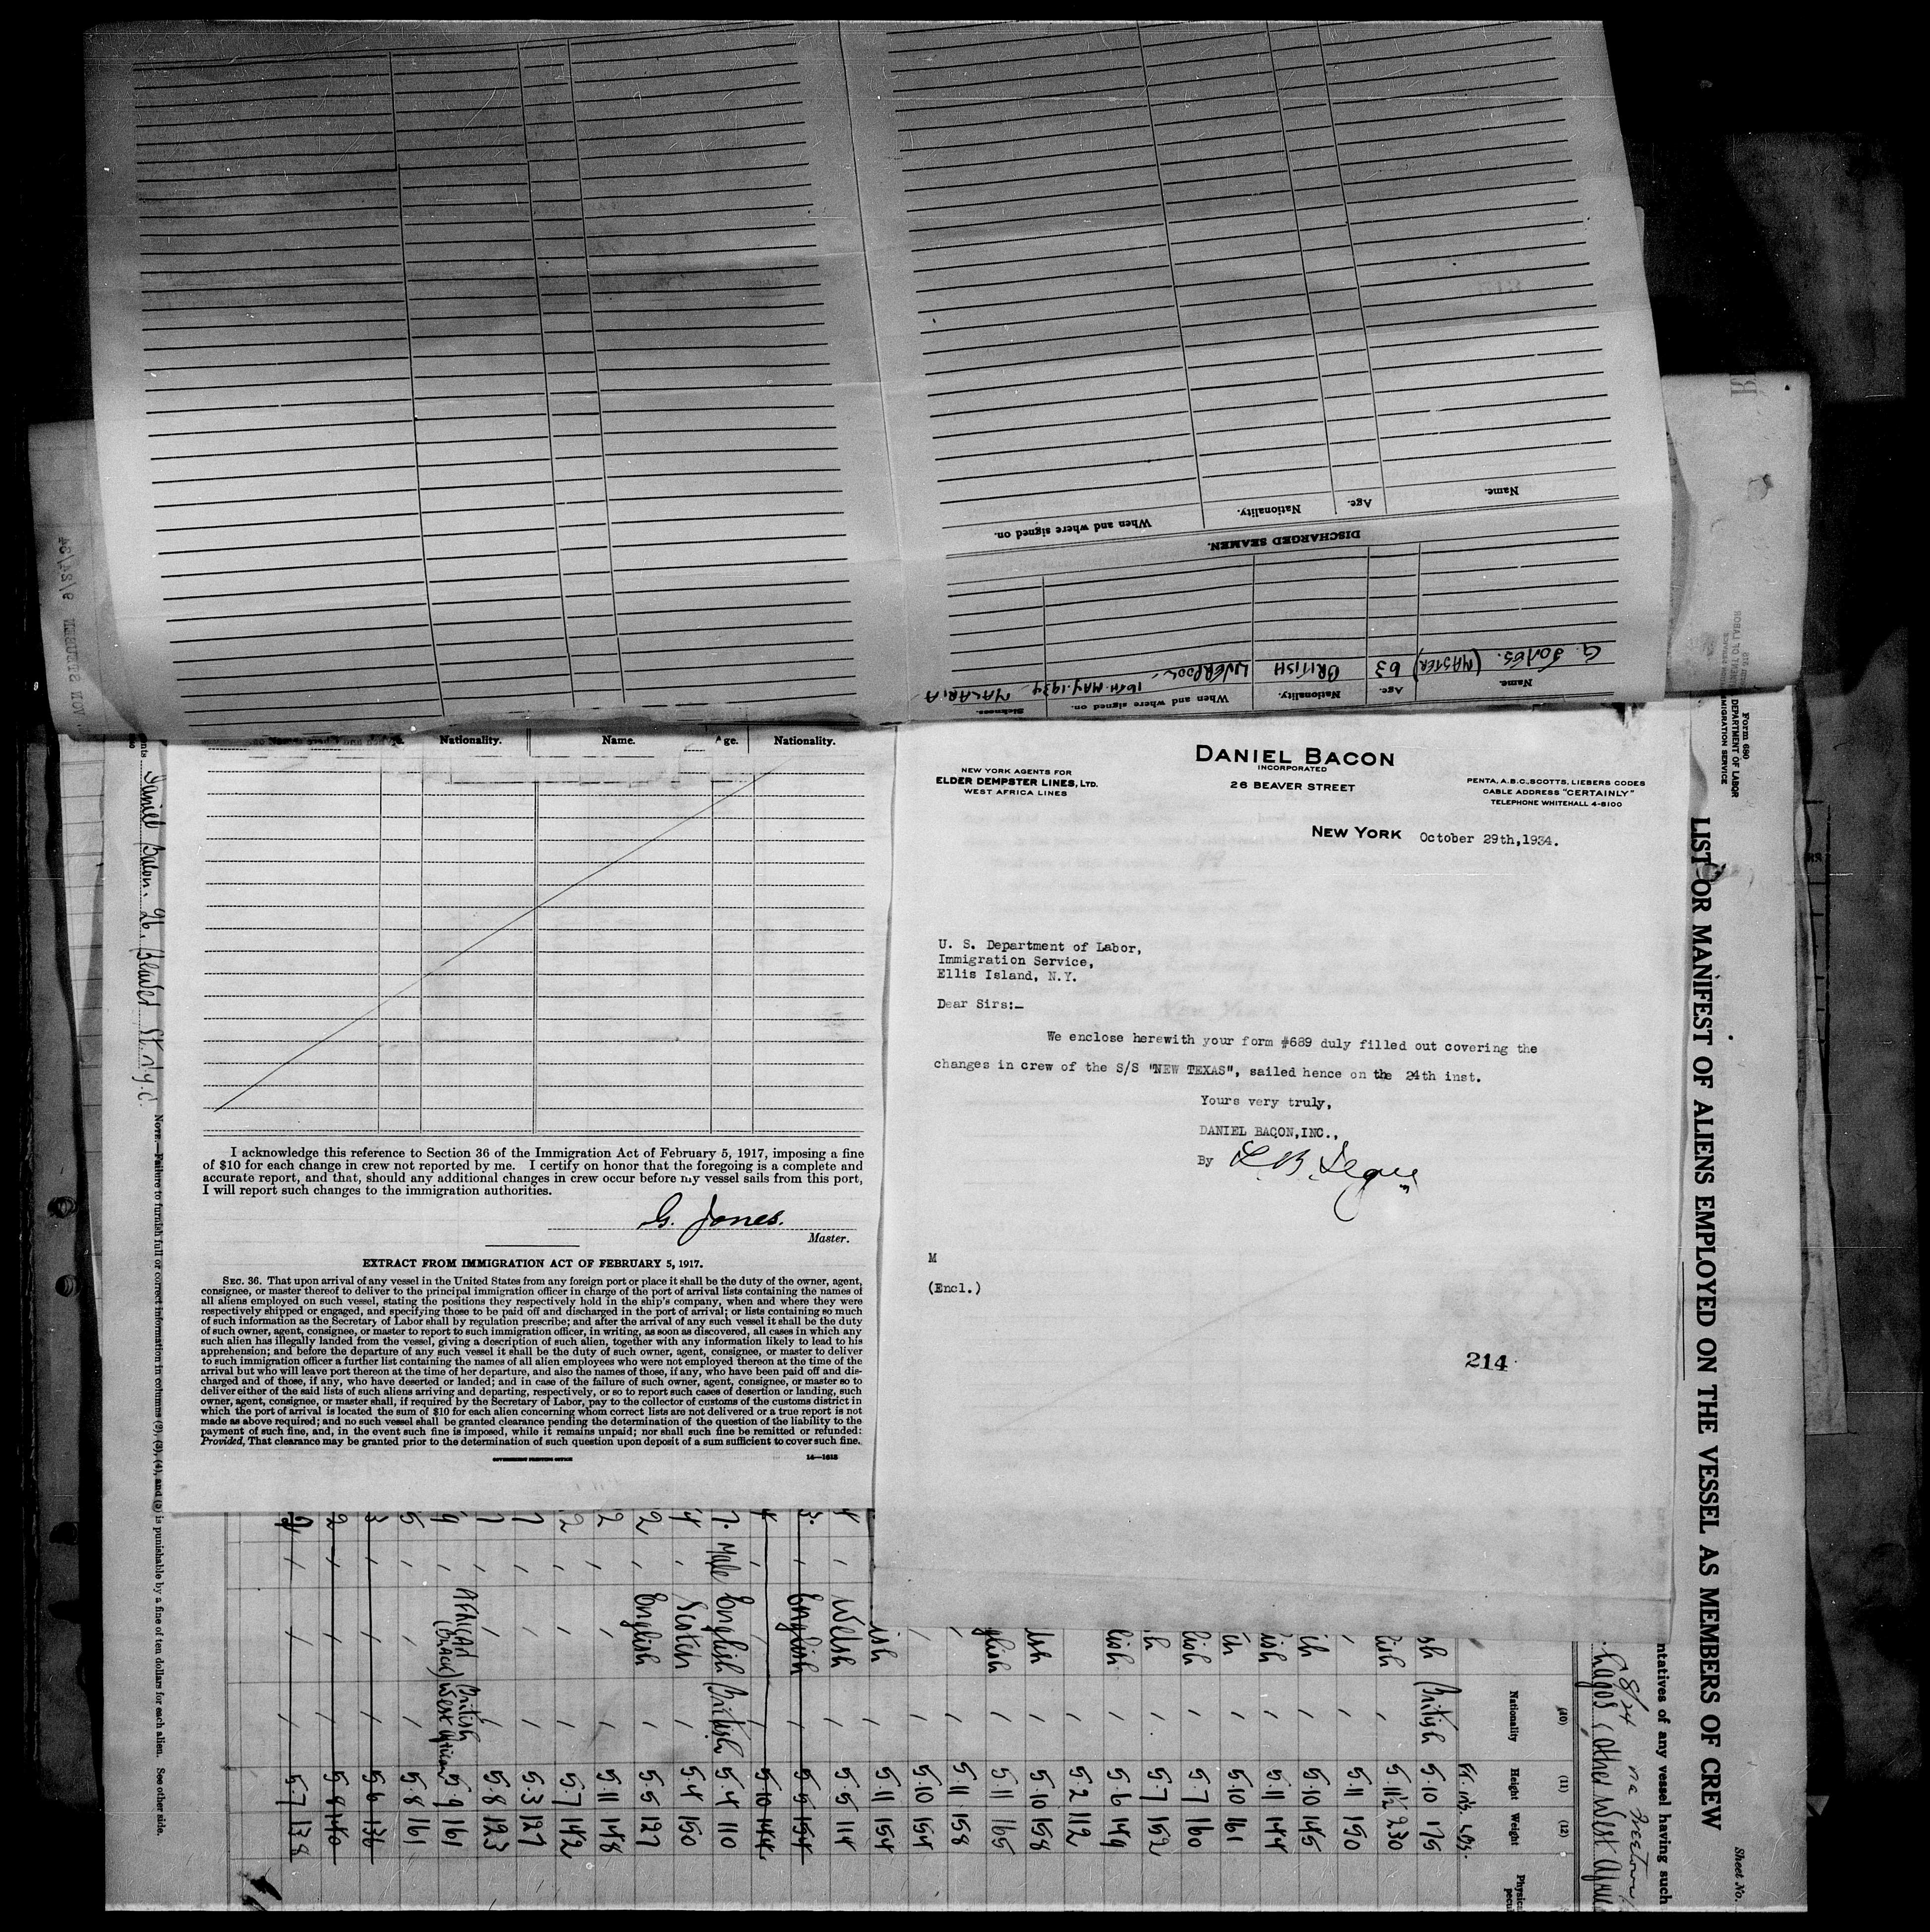 Name.
Age.
Nationality.
When and where signed on.
DISCHARGED SEAMEN.
G. JONES. (MASTER) 63 BRITISH LIVERPOOL. 16TH. MAY. 1934 MALARIA
Name.
Age.
Nationality.
When and where signed on.
Sickness.
Nationality. Name. Age. Nationality.
I acknowledge this reference to Section 36 of the Immigration Act of February 5, 1917, imposing a fine
of $10 for each change in crew not reported by me. I certify on honor that the foregoing is a complete and
accurate report, and that, should any additional changes in crew occur before my vessel sails from this port,
I will report such changes to the immigration authorities.
G. Jones.
Master.
EXTRACT FROM IMMIGRATION ACT OF FEBRUARY 5, 1917.
SEC. 36. That upon arrival of any vessel in the United States from any foreign port or place it shall be the duty of the owner, agent,
consignee, or master thereof to deliver to the principal immigration officer in charge of the port of arrival lists containing the names of
all aliens employed on such vessel, stating the positions they respectively hold in the ship's company, when and where they were
respectively shipped or engaged, and specifying those to be paid off and discharged in the port of arrival; or lists containing so much
of such information as the Secretary of Labor shall by regulation prescribe; and after the arrival of any such vessel it shall be the duty
of such owner, agent, consignee, or master to report to such immigration officer, in writing, as soon as discovered, all cases in which any
such alien has illegally landed from the vessel, giving a description of such alien, together with any information likely to lead to his
apprehension; and before the departure of any such vessel it shall be the duty of such owner, agent, consignee, or master to deliver
to such immigration officer a further list containing the names of all alien employees who were not employed thereon at the time of the
arrival but who will leave port thereon at the time of her departure, and also the names of those, if any, who have been paid off and dis-
charged and of those, if any, who have deserted or landed; and in case of the failure of such owner, agent, consignee, or master so to
deliver either of the said lists of such aliens arriving and departing, respectively, or so to report such cases of desertion or landing, such
owner, agent, consignee, or master shall, if required by the Secretary of Labor, pay to the collector of customs of the customs district in
which the port of arrival is located the sum of $10 for each alien concerning whom correct lists are not delivered or a true report is not
made as above required; and no such vessel shall be granted clearance pending the determination of the question of the liability to the
payment of such fine, and, in the event such fine is imposed, while it remains unpaid; nor shall such fine be remitted or refunded:
Provided, That clearance may be granted prior to the determination of such question upon deposit of a sum sufficient to cover such fine.
GOVERNMENT PRINTING OFFICE
DANIEL BACON
INCORPORATED
26 BEAVER STREET
NEW YORK AGENTS FOR
ELDER DEMPSTER LINES, LTD.
WEST AFRICA LINES
PENTA, A.B.C, SCOTTS, LIEBERS CODES
CABLE ADDRESS "CERTAINLY"
TELEPHONE WHITEHALL 4-8100
NEW YORK October 29th,1934.
U. S. Department of Labor,
Immigration Service,
Ellis Island, N.Y.
Dear Sirs:-
We enclose herewith your form #689 duly filled out covering the
changes in crew of the S/S "NEW TEXAS", sailed hence on the 24th inst.
Yours very truly,
DANIEL BACON,INC.,
By
M
(Encl.)
214
Form 680
DEPARTMENT OF LABOR
IMMIGRATION SERVICE
LIST OR MANIFEST OF ALIENS EMPLOYED ON THE VESSEL AS MEMBERS OF CREW
Sheet No.
ntatives of any vessel having such
Lagos (other West
(10) (11) (12)
Nationality Height Weight
British 5.10 175
5.11½ 230
5.11 150
5.10 145
5.11 144
5.10 161
5.7 160
5.7 152
5.6 149
5.2 112
5.10 158
5.11 165
5.11 158
5.10 154
5.11 154
Welsh 5.5 114
English 5.5 154
5.10 144
7. Male English British 5.4 110
Scotch 5.4 150
2 English 5.5 127
2 5.11 148
2 5.7 142
7 5.3 127
7 5.8 123
9 African (Black) British West African 5.9 161
5 5.8 161
3 5.6 136
2 5.8 140
5.7 138
Daniel Bacon. 26. Beaver St. N.Y.C.
NOTE.—Failure to furnish full or correct information in columns (2), (3), (4), and (5) is punishable by a fine of ten dollars for each alien. See other side.
9/24/34